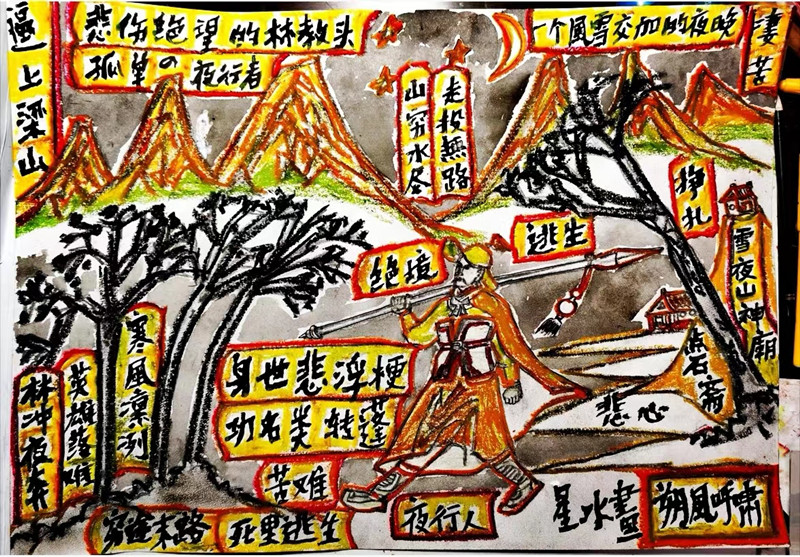 逼上梁山
悲伤绝望的林教头
孤单の夜行者
一个風雪交加的夜晚
凄苦
走投無路
山穷水尽
挣扎
逃生
绝境
雪夜山神廟
寒風凛冽
英雄落难
林冲夜奔
身世悲浮梗
功名类转蓬
苦难
点石斋
悲怆
穷途末路
死里逃生
夜行人
星水畫
朔風呼啸